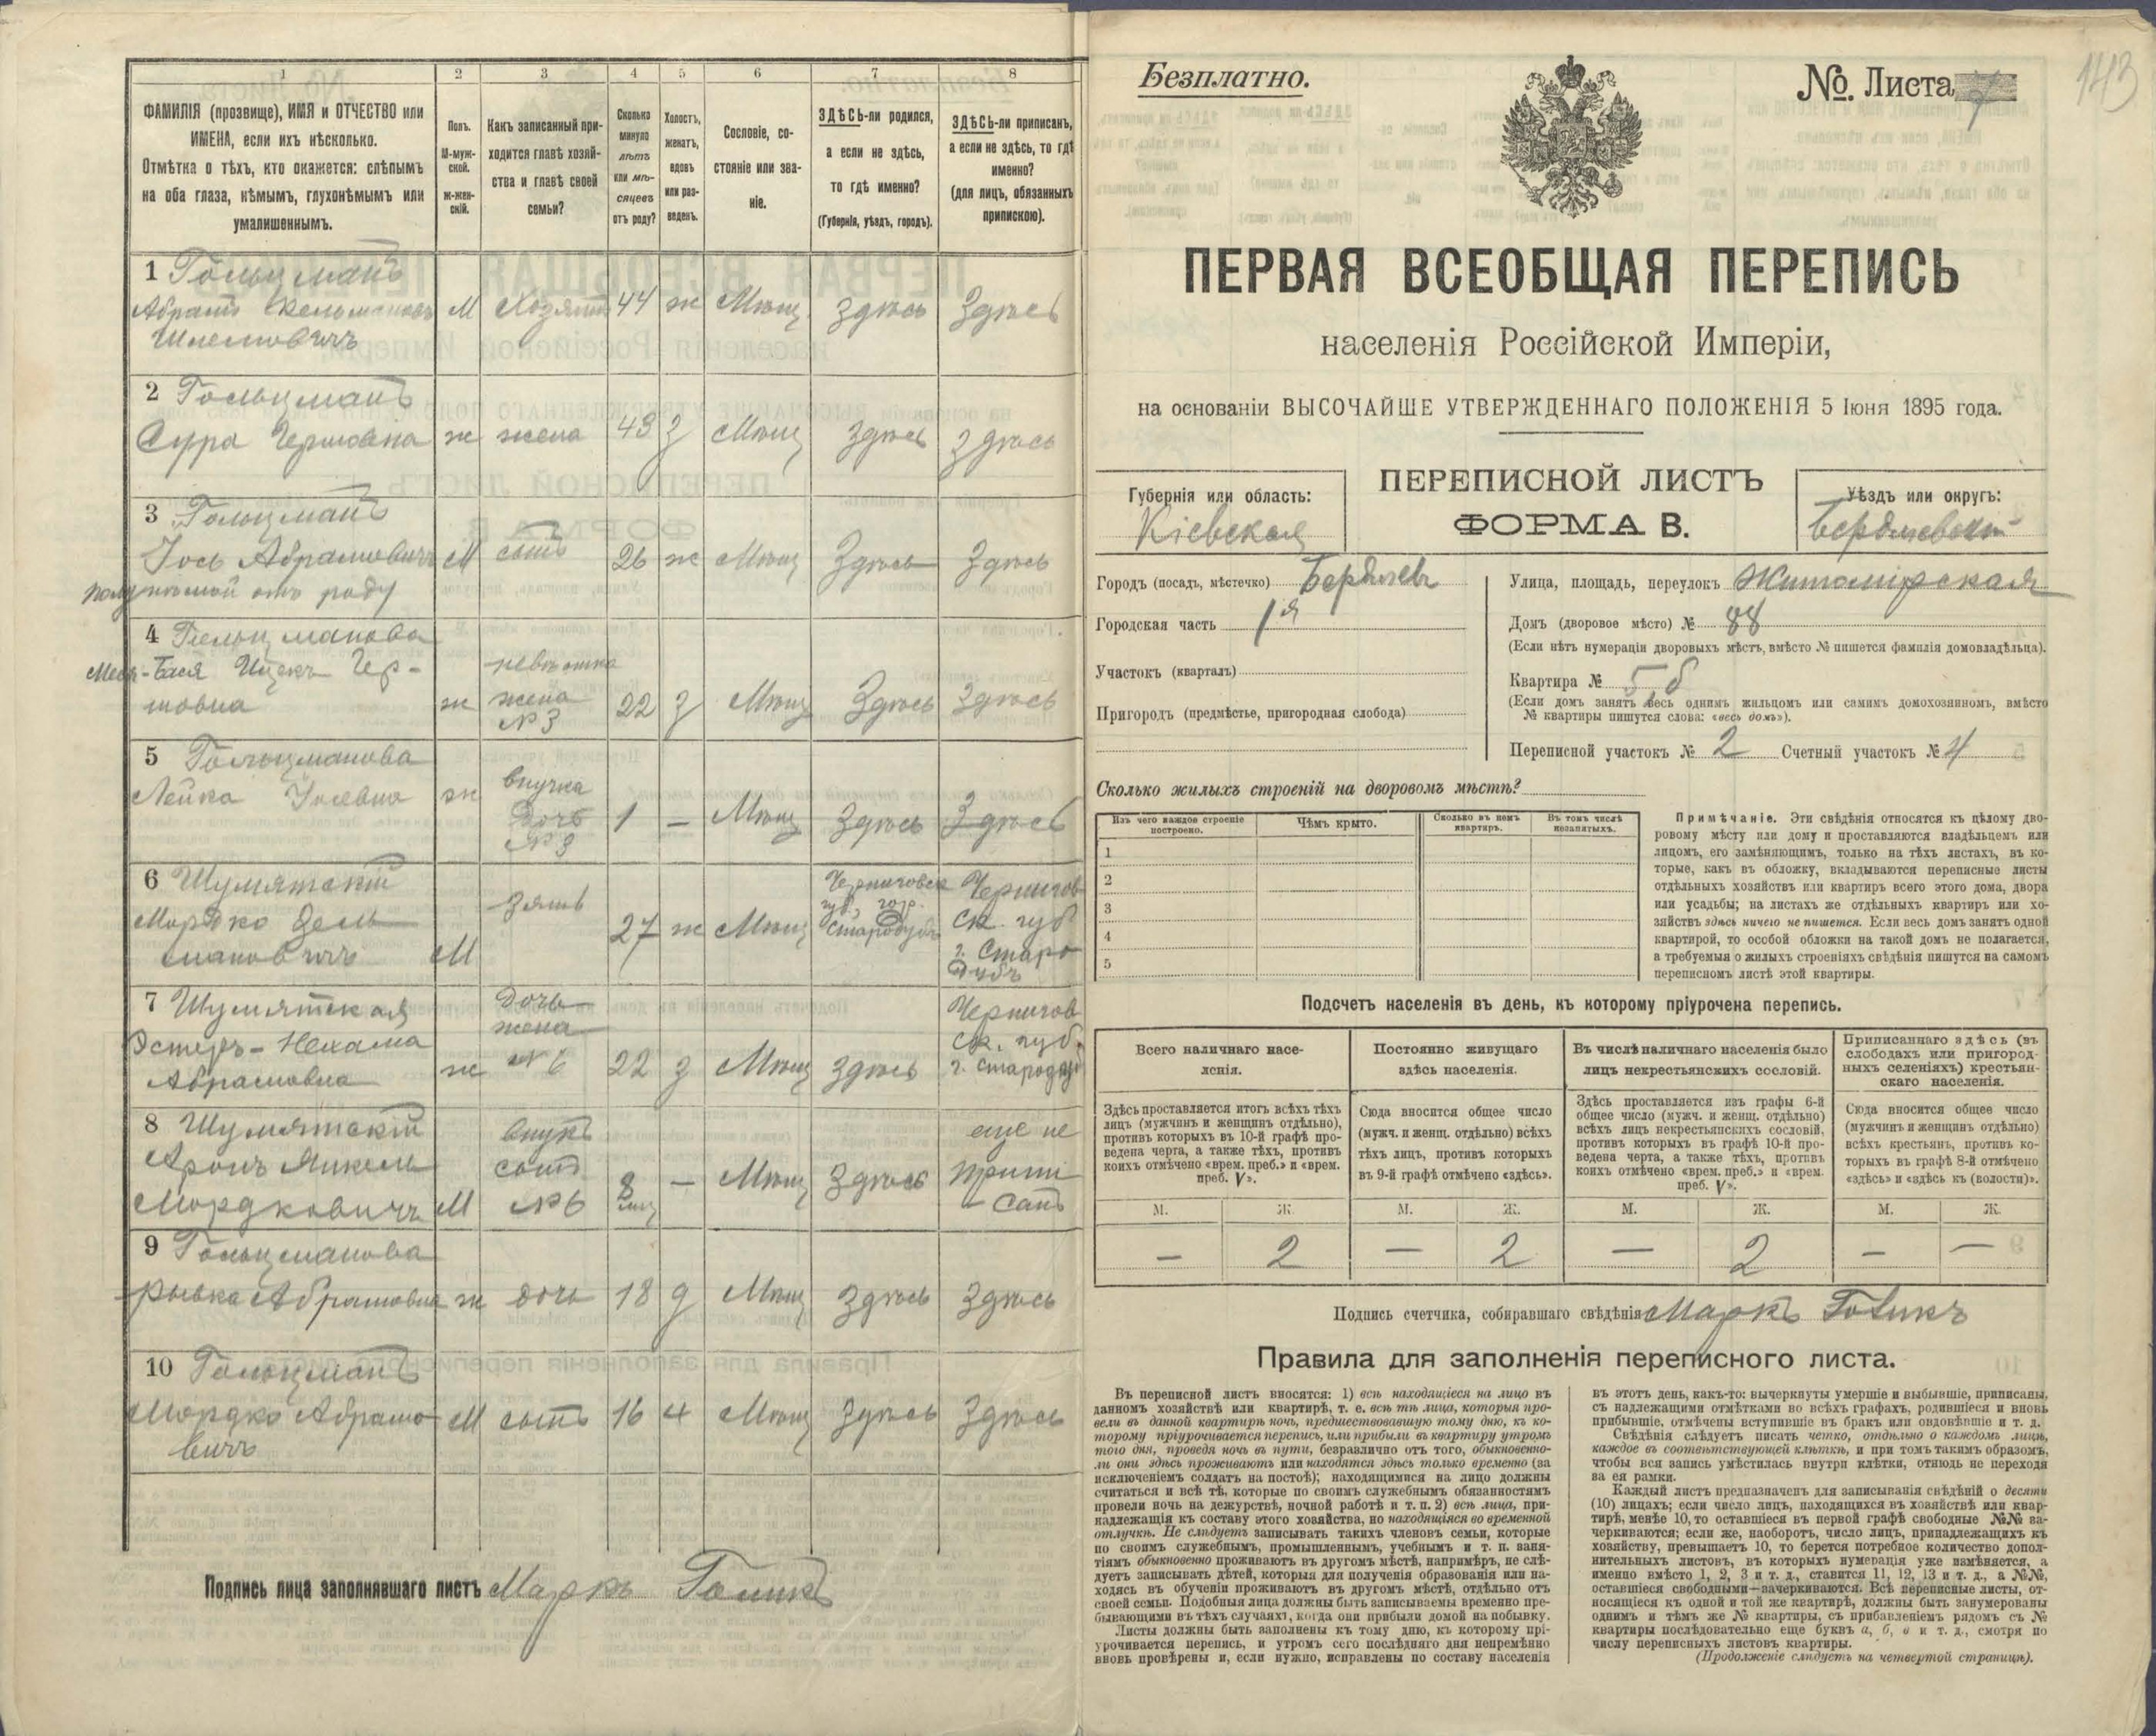 1
2
3
4
5
6
7
8
ФАМИЛІЯ (прозвище), ИМЯ и ОТЧЕСТВО или
ИМЕНА, если ихъ нѣсколько.
Отмѣтка о тѣхъ, кто окажется: слѣпымъ
на оба глаза, нѣмымъ, глухонѣмымъ или
умалишеннымъ.
Полъ.
М-муж-
ской.
Ж-жен-
скій.
Какъ записанный при-
ходится главѣ хозяй-
ства и главѣ своей
семьи?
Сколько
минуло
лѣтъ
или мѣ-
сяцевъ
отъ роду?
Холостъ,
женатъ,
вдовъ
или раз-
веденъ.
Сословіе, со-
стояніе или зва-
ніе.
ЗДѢСЬ-ли родился,
а если не здѣсь,
то гдѣ именно?
(Губернія, уѣздъ, городъ).
ЗДѢСЬ-ли приписанъ,
а если не здѣсь, то гдѣ
именно?
(для лицъ, обязанныхъ
припискою).
1 Гольцманъ
Абрамъ
Шлемовичъ
М Хозяинъ 44 ж Мѣщ Здѣсь Здѣсь
2 Гольцманъ
Сура Гершовна ж жена 43 з Мѣщ Здѣсь Здѣсь
3 Гольцманъ
Іось Абрамовичъ М сынъ 26 ж Мѣщ Здѣсь Здѣсь
полунѣмой отъ роду
4 Гольцманова
Бася Гер-
шовна ж невѣстка жена №3 22 з Мѣщ Здѣсь Здѣсь
5 Гольцманова
Лейка Іосевна ж внучка дочь №3 1 — Мѣщ Здѣсь Здѣсь
6 Шумятскій
Мордко Зель
мановичъ М зять 27 ж Мѣщ
Черниговск
губ. гор.
Стародубъ
Чернигов
ск. губ
г. Старо
дубъ
7 Шумятская
Эстеръ-Нехама
Абрамовна ж
дочь
жена
№ 6 22 з Мѣщ Здѣсь
Чернигов
ск. губ.
г. Стародубъ
8 Шумятскій
Аронъ
Мордковичъ М
внукъ
сынъ
№6 8 мѣс — Мѣщ Здѣсь
еще не
припи
санъ
9 Гольцманова
Рывка Абрамовна ж дочь 18 д Мѣщ Здѣсь Здѣсь
10 Гольцманъ
Мордко Абрамо
вичъ М сынъ 16 х Мѣщ Здѣсь Здѣсь
Подпись лица заполнявшаго листъ Маркъ Голикъ
143
Безплатно.
№. Листа 7
ПЕРВАЯ ВСЕОБЩАЯ ПЕРЕПИСЬ
населенія Россійской Имперіи,
на основаніи ВЫСОЧАЙШЕ УТВЕРЖДЕННАГО ПОЛОЖЕНІЯ 5 Іюня 1895 года.
Губернія или область:
Кіевская
ПЕРЕПИСНОЙ ЛИСТЪ
ФОРМА В.
Уѣздъ или округъ:
Бердичевскій
Городъ (посадъ, мѣстечко) Бердичевъ
Городская часть 1я
Участокъ (кварталъ)
Пригородъ (предмѣстье, пригородная слобода)
Улица, площадь, переулокъ Житомірская
Домъ (дворовое мѣсто) № 88
(Если нѣтъ нумераціи дворовыхъ мѣстъ, вмѣсто № пишется фамилія домовладѣльца).
Квартира № 5 б
(Если домъ занятъ весь однимъ жильцомъ или самимъ домохозяиномъ, вмѣсто
№ квартиры пишутся слова: «весь домъ»).
Переписной участокъ № 2 Счетный участокъ № 4
Сколько жилыхъ строеній на дворовомъ мѣстѣ?
Изъ чего каждое строеніе
построено.
Чѣмъ крыто.
Сколько въ немъ
квартиръ.
Въ томъ числѣ
незанятыхъ.
1
2
3
4
5
Примѣчаніе. Эти свѣдѣнія относятся къ цѣлому дво-
ровому мѣсту или дому и проставляются владѣльцемъ или
лицомъ, его замѣняющимъ, только на тѣхъ листахъ, въ ко-
торые, какъ въ обложку, вкладываются переписные листы
отдѣльныхъ хозяйствъ или квартиръ всего этого дома, двора
или усадьбы; на листахъ же отдѣльныхъ квартиръ или хо-
зяйствъ здѣсь ничего не пишется. Если весь домъ занятъ одной
квартирой, то особой обложки на такой домъ не полагается,
а требуемыя о жилыхъ строеніяхъ свѣдѣнія пишутся на самомъ
переписномъ листѣ этой квартиры.
Подсчетъ населенія въ день, къ которому пріурочена перепись.
Всего наличнаго насе-
ленія.
Постоянно живущаго
здѣсь населенія.
Въ числѣ наличнаго населенія было
лицъ некрестьянскихъ сословій.
Приписаннаго здѣсь (въ
слободахъ или пригород-
ныхъ селеніяхъ) крестьян-
скаго населенія.
Здѣсь проставляется итогъ всѣхъ тѣхъ
лицъ (мужчинъ и женщинъ отдѣльно),
противъ которыхъ въ 10-й графѣ про-
ведена черта, а также тѣхъ, противъ
коихъ отмѣчено «врем. преб.» и «врем.
преб. V».
Сюда вносится общее число
(мужч. и женщ. отдѣльно) всѣхъ
тѣхъ лицъ, противъ которыхъ
въ 9-й графѣ отмѣчено «здѣсь».
Здѣсь проставляется изъ графы 6-й
общее число (мужч. и женщ. отдѣльно)
всѣхъ лицъ некрестьянскихъ сословій,
противъ которыхъ въ графѣ 10-й про-
ведена черта, а также тѣхъ, противъ
коихъ отмѣчено «врем. преб.» и «врем.
преб. V».
Сюда вносится общее число
(мужчинъ и женщинъ отдѣльно)
всѣхъ крестьянъ, противъ ко-
торыхъ въ графѣ 8-й отмѣчено
«здѣсь» и «здѣсь къ (волости)».
М. Ж. М. Ж. М. Ж. М. Ж.
— 2 — 2 — 2 — —
Подпись счетчика, собиравшаго свѣдѣнія Маркъ Голикъ
Правила для заполненія переписного листа.
Въ переписной листъ вносятся: 1) всѣ находящіеся на лицо въ
данномъ хозяйствѣ или квартирѣ, т. е. всѣ тѣ лица, которыя про-
вели въ данной квартирѣ ночь, предшествовавшую тому дню, къ ко-
торому пріурочивается перепись, или прибыли въ квартиру утромъ
того дня, проведя ночь въ пути, безразлично отъ того, обыкновенно-
ли они здѣсь проживаютъ или находятся здѣсь только временно (за
исключеніемъ солдатъ на постоѣ); находящимися на лицо должны
считаться и всѣ тѣ, которые по своимъ служебнымъ обязанностямъ
провели ночь на дежурствѣ, ночной работѣ и т. п. 2) всѣ лица, при-
надлежащія къ составу этого хозяйства, но находящіяся во временной
отлучкѣ. Не слѣдуетъ записывать такихъ членовъ семьи, которые
по своимъ служебнымъ, промышленнымъ, учебнымъ и т. п. заня-
тіямъ обыкновенно проживаютъ въ другомъ мѣстѣ, напримѣръ, не слѣ-
дуетъ записывать дѣтей, которыя для полученія образованія или на-
ходясь въ обученіи проживаютъ въ другомъ мѣстѣ, отдѣльно отъ
своей семьи. Подобныя лица должны быть записываемы временно пре-
бывающими въ тѣхъ случаяхъ, когда они прибыли домой на побывку.
Листы должны быть заполнены къ тому дню, къ которому прі-
урочивается перепись, и утромъ сего послѣдняго дня непремѣнно
вновь провѣрены и, если нужно, исправлены по составу населенія
въ этотъ день, какъ-то: вычеркнуты умершіе и выбывшіе, приписаны,
съ надлежащими отмѣтками во всѣхъ графахъ, родившіеся и вновь
прибывшіе, отмѣчены вступившіе въ бракъ или овдовѣвшіе и т. д.
Свѣдѣнія слѣдуетъ писать четко, отдѣльно о каждомъ лицѣ,
каждое въ соотвѣтствующей клѣткѣ, и при томъ такимъ образомъ,
чтобы вся запись умѣстилась внутри клѣтки, отнюдь не переходя
за ея рамки.
Каждый листъ предназначенъ для записыванія свѣдѣній о десяти
(10) лицахъ; если число лицъ, находящихся въ хозяйствѣ или квар-
тирѣ, менѣе 10, то оставшіеся въ первой графѣ свободные №№ за-
черкиваются; если же, наоборотъ, число лицъ, принадлежащихъ къ
хозяйству, превышаетъ 10, то берется потребное количество допол-
нительныхъ листовъ, въ которыхъ нумерація уже измѣняется, а
именно вмѣсто 1, 2, 3 и т. д., ставится 11, 12, 13 и т. д., а №№,
оставшіеся свободными—зачеркиваются. Всѣ переписные листы, от-
носящіеся къ одной и той же квартирѣ, должны быть занумерованы
однимъ и тѣмъ же № квартиры, съ прибавленіемъ рядомъ съ №
квартиры послѣдовательно еще буквъ а, б, в и т. д., смотря по
числу переписныхъ листовъ квартиры.
(Продолженіе слѣдуетъ на четвертой страницѣ).